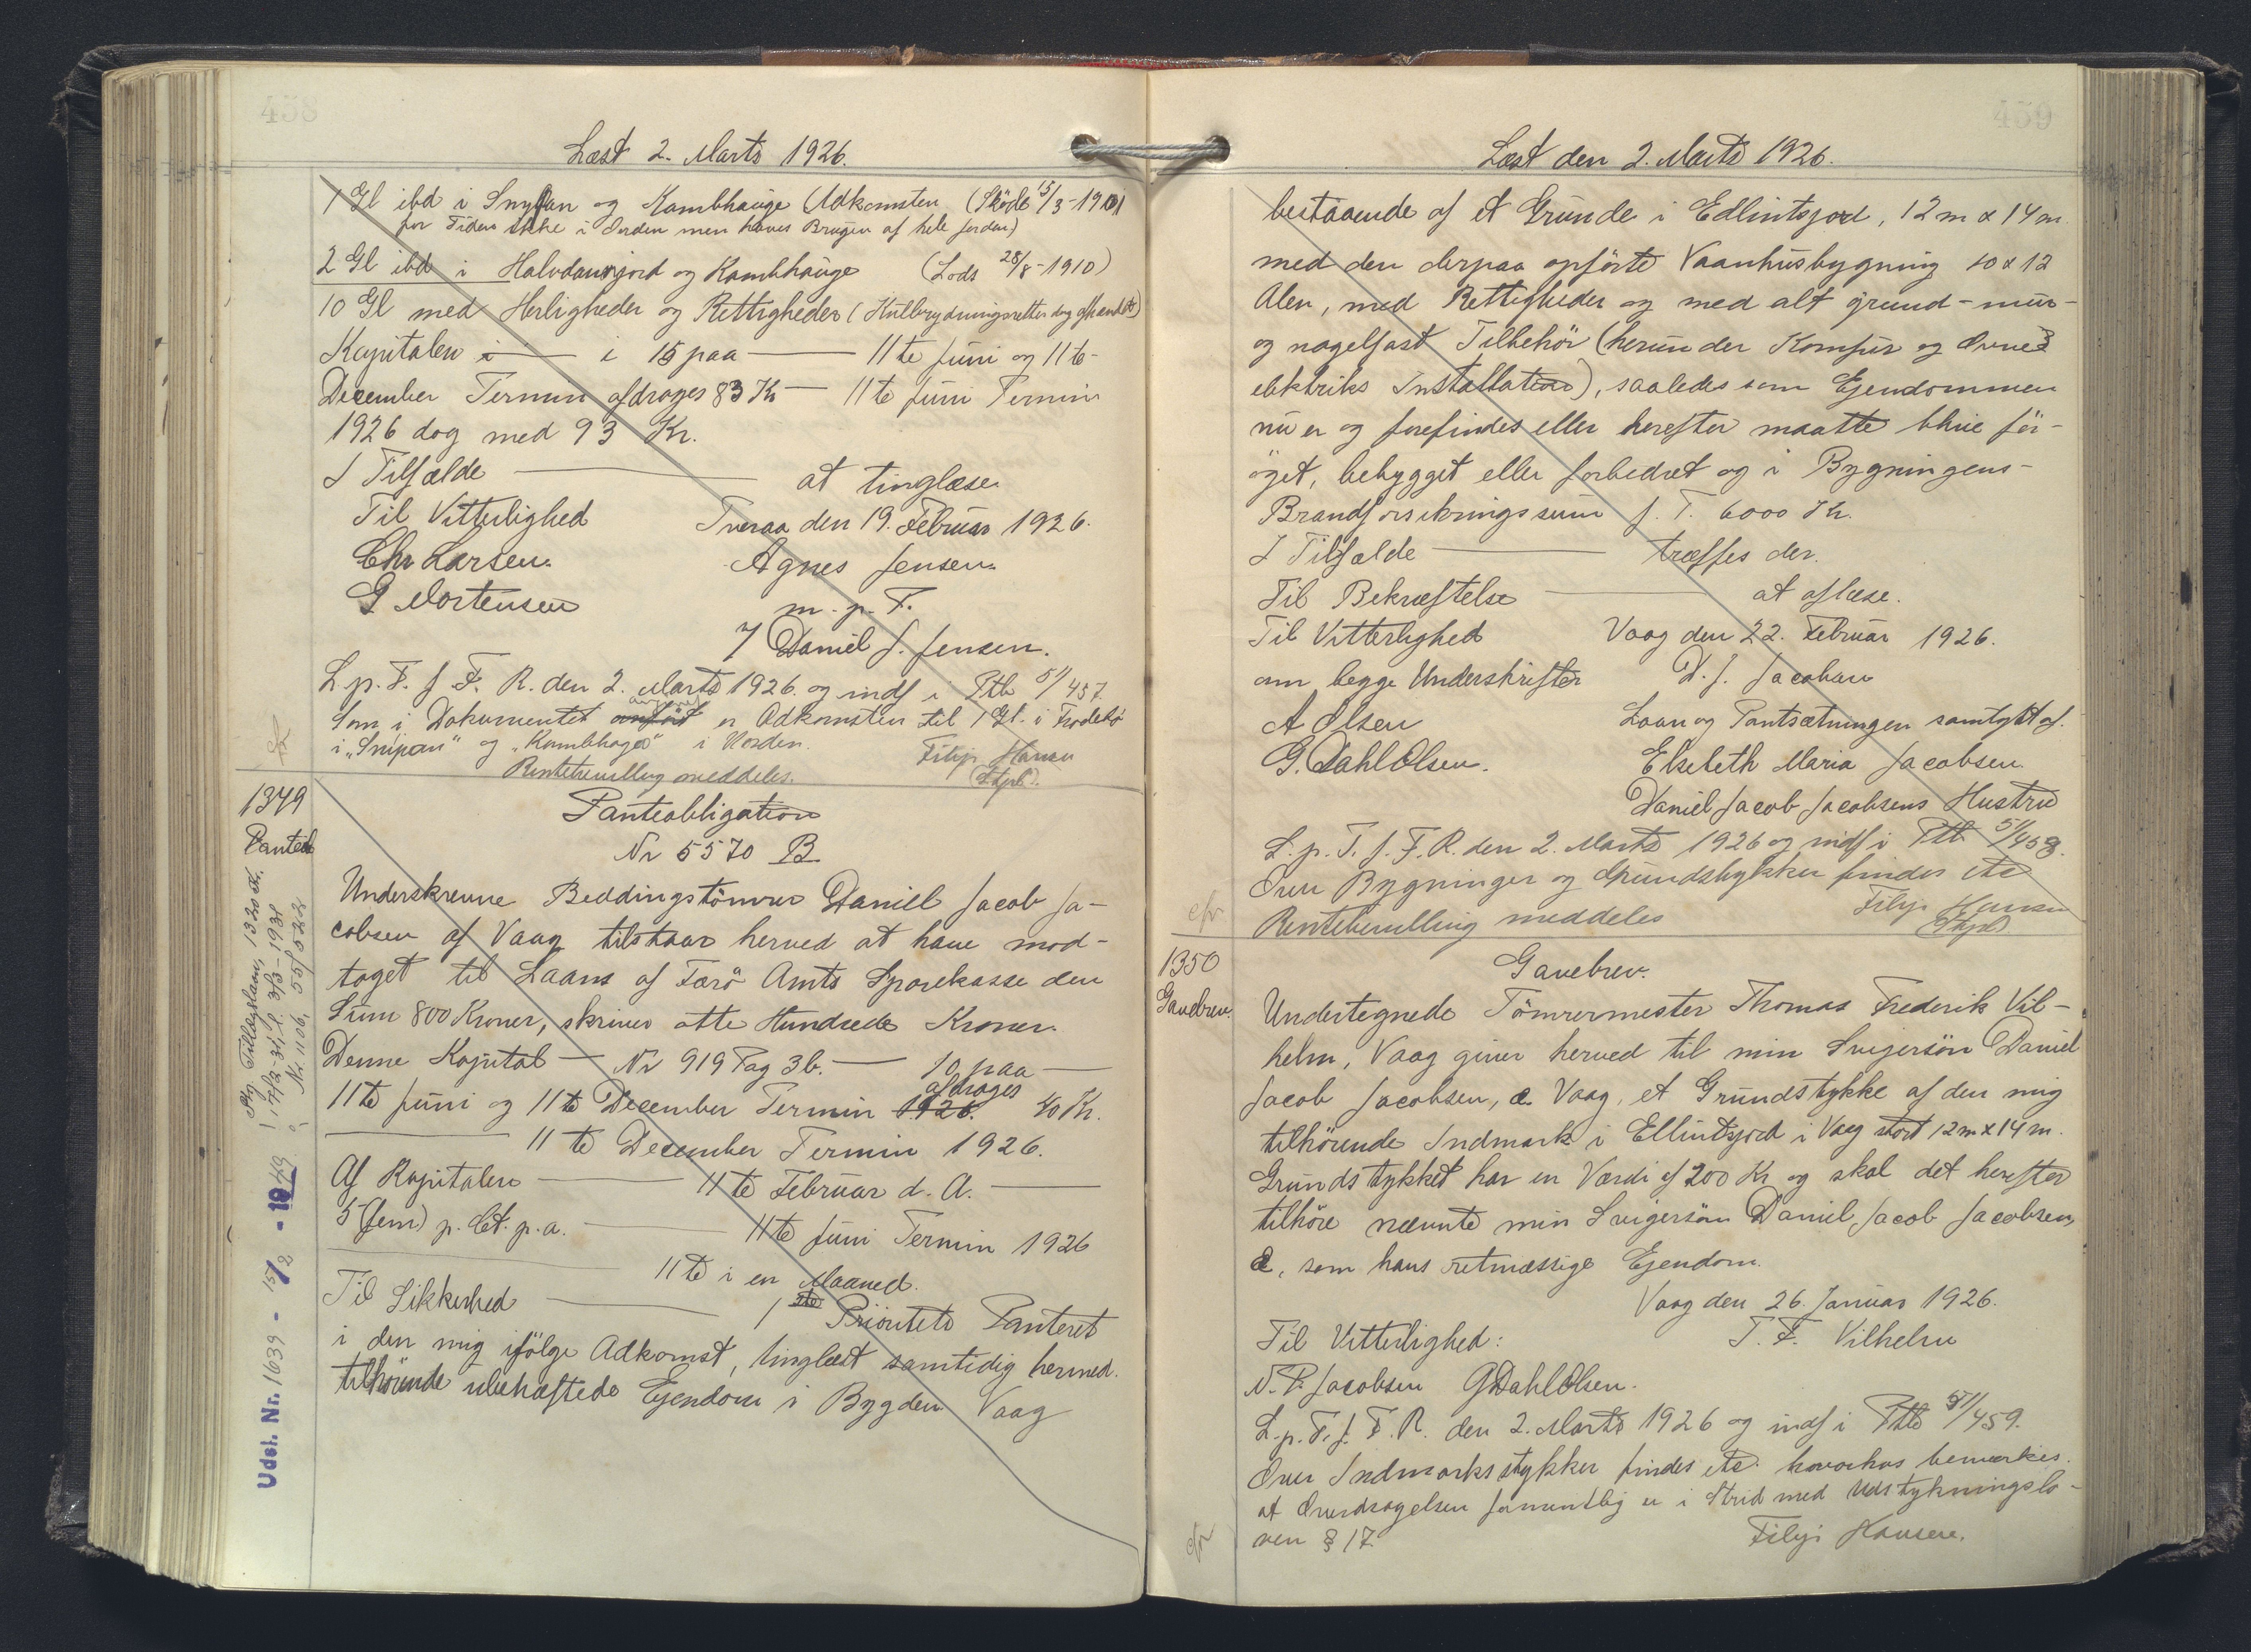 458
Læst 2. Marts 1926.
1 Gl ibd i Snypan og Kambhauge (Adkomsten (Sköde 15/3-1901
for Tiden ikke i Orden men haves Brugen af hele Jorden)
2 Gl ibd i Halvdansjord og Kambhauge (Lods 28/8-1910)
10 Gl med Herligheder og Rettigheder (Kulbrydningsretten dog afhændet)
Kapitalen i — i 15 paa — 11te Juni og 11te
December Termin afdrages 83 Kr — 11te Juni Termin
1926 dog med 93 Kr.
I Tilfælde — at tinglæse
Til Vitterlighed Tveraa den 19. Februar 1926.
Chr Larsen. Agnes Jensen.
G Mortensen m. p. F.
Daniel J. Jensen.
L. p. T. f. F. R. den 2. Marts 1926. og indf i Ptb 51/457.
Som i Dokumentet angivet er Adkomsten til 1 Gl. i Frodebö
i "Snipan" og "Kambhage" i Uorden. Filip Hansen
Rentebevilling meddeles. Stpl.
cfr
1349
Panteobl
Panteobligation
Nr 5570 B
Underskrevne Beddingstömrer Daniel Jacob Ja-
cobsen af Vaag tilstaar herved at have mod-
taget til Laans af Færö Amts Sparekasse den
Sum 800 Kroner, skriver otte Hundrede Kroner.
Denne Kapital — Nr 919 Pag 36. — 10 paa —
11te Juni og 11te December Termin 1926. afdrages 40 Kr.
— 11te December Termin 1926.
Af Kapitalen — 11te Februar d. A. —
5 (fem) p. Ct. p. a. — 11te Juni Termin 1926
— 11te i en Maaned.
Til Sikkerhed — 1ste Prioritets Panteret
i den mig ifölge Adkomst, tinglæst samtidig hermed.
tilhörende ubehæftede Ejendom i Bygden Vaag
Ptg. Tillægslaan, 1320 Kr.
17/2 31, l. 3/3-1931
Nr. 1106, 55/522
Udsl. Nr. 1639 - 15/2 - 1949
459
Læst den 2. Marts 1926.
bestaaende af et Grunde i Edlintsjord, 12 m x 14 m.
med den derpaa opförte Vaanhusbygning 10 x 12
Alen, med Rettigheder og med alt grund-mur-
og nagelfast Tilbehör (herunder Komfur og Ovne &
elektriks Installation), saaledes som Ejendommen
nu er og forefindes eller herefter maatte blive for-
öget, bebygget eller forbedret og i Bygningens
Brandforsikringssum f. T. 6000 Kr.
I Tilfælde — træffes der.
Til Bekræftelse — at aflæse.
Til Vitterlighed Vaag den 22. Februar 1926.
om begge Underskrifter D. J. Jacobsen
A Olsen Laan og Pantsætningen samtykt af.
G. Dahl Olsen. Elsebeth Maria Jacobsen
Daniel Jacob Jacobsens Hustru
L. p. T. f. F. R. den 2. Marts 1926 og indf i Ptb 51/458.
Over Bygninger og Grundstykker findes etc
Rentebevilling meddeles Filip Hansen
Stpl.
cfr
1350
Gavebrev.
Gavebrev.
Undertegnede Tömrermester Thomas Frederik Vil-
helm, Vaag giver herved til min Svigersön Daniel
Jacob Jacobsen, æ. Vaag, et Grundstykke af den mig
tilhörende Indmark i Ellintsjord i Vaag stort 12 m x 14 m.
Grundstykket har en Værdi af 200 Kr og skal det herefter
tilhöre nævnte min Svigersön Daniel Jacob Jacobsen,
æ, som hans retmæssige Ejendom.
Vaag den 26. Januar 1926.
Til Vitterlighed: T. F. Vilhelm
N. P. Jacobsen G Dahl Olsen.
L. p. T. f. F. R. den 2. Marts 1926 og indf i Ptb 51/459.
Over Indmarksstykker findes etc. hvorhos bemærkes.
at Overdragelsen formentlig er i Strid med Udstykningslo-
ven § 17. Filip Hansen.
cfr